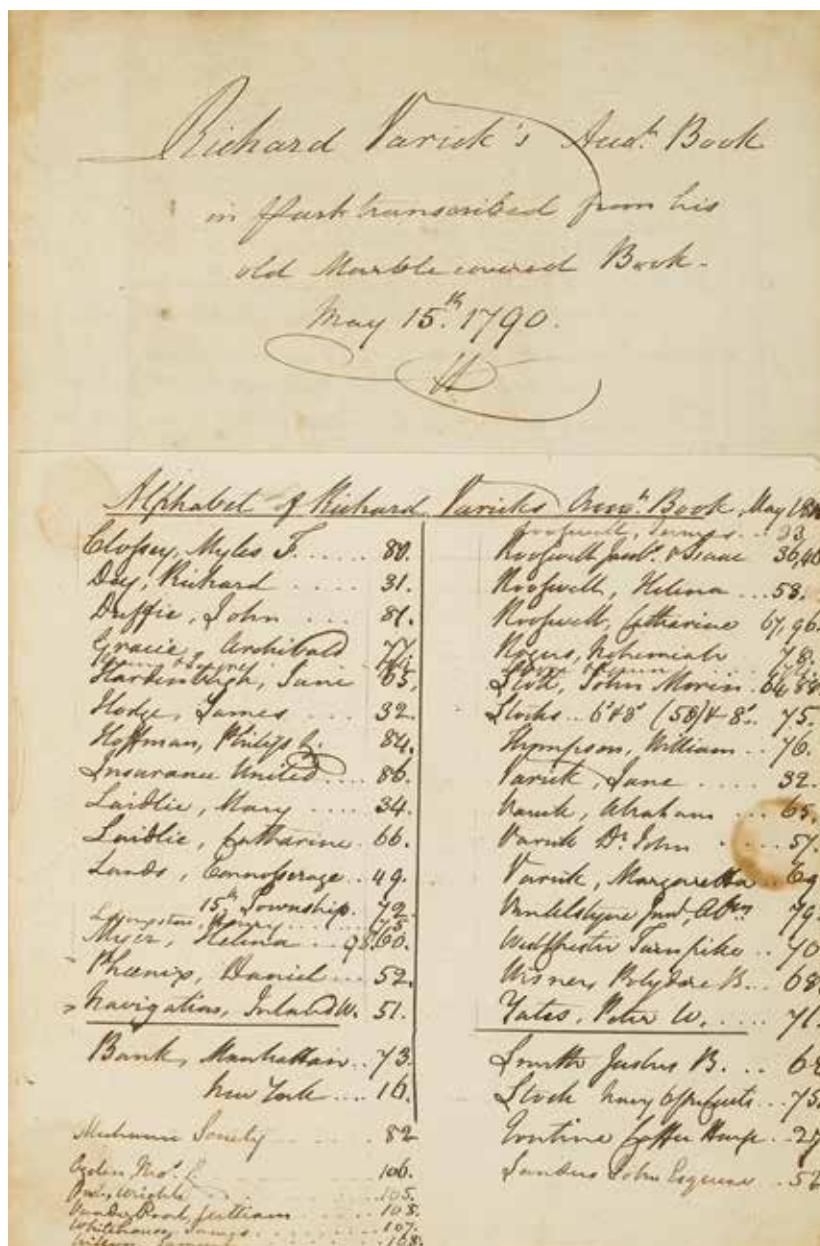 Richard Varick's Acct. Book
in part transcribed from his
old Marble covered Book.
May 15th. 1790.
Alphabet of Richard Varicks Acct. Book, May
Clossey, Myles F. ..... 80.
Dey, Richard .... 31.
Duffie, John ... 81.
Gracie, Archibald 77.
Hardenbergh, Jane 65,
Hodge, James ... 32.
Hoffman, Philip 84.
Insurance United ... 86.
Laidlie, Mary .... 34.
Laidlie, Catharine. 66.
Lands, .. 49.
15th Township. 72
Livingston, Henry
Myer, Helena 60.
Phœnix, Daniel .... 52.
Navigation, Inland W. 51.
Bank, Manhattan .. 73.
New York .... 16.
Mechanic Society 82
Ogden 106.
105.
108.
Whitehouse, James 107.
108.
Roosevelt, James .. 33
Roosevelt Jacobs. & Isaac 36,46
Roosevelt, Helena ... 58.
Roosevelt, Catharine 67, 96.
Rogers, Nehemiah 78.
Scott, John Morin 64, 88
Stocks .. 6 & 8 (58) & 8 .. 75.
Thompson, William .. 76.
Varick, Jane .... 32.
Varick, Abraham ... 65.
Varick Dr. John
Varick, Margaretta 69
79.
Westchester Turnpike .. 70
Wisner, Polydore B... 68
Yates, Peter W. .... 71.
Smith Justus B. ..
Stock Navy 6 pr Cents .. 75.
Tontine Coffee House . 27
Sanders John Esquire